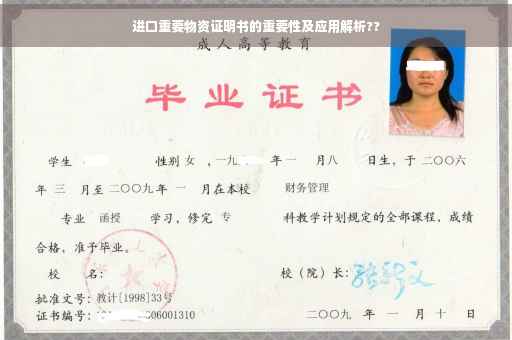 进口重要物资证明书的重要性及应用解析??
成人高等教育
毕业证书
学生 性别 女 ，一九 年 一 月八 日生，于 二〇〇六
年 三 月至 二〇〇九 年 一 月在本校 财务管理
专业 函授 学习，修完 专 科教学计划规定的全部课程，成绩
合格，准予毕业。
校 名： 校（院）长：
批准文号：教计[1998]33号
证书编号： 06001310 二〇〇九 年 一 月 十 日